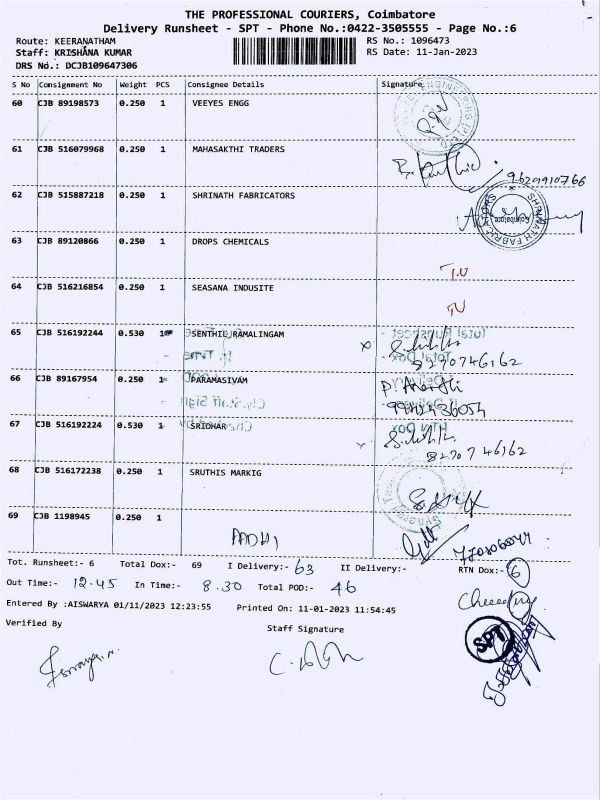 THE PROFESSIONAL COURIERS, Coimbatore
Delivery Runsheet - SPT - Phone No.:0422-3505555 - Page No.:6
Route: KEERANATHAM RS No.: 1096473
Staff: KRISHANA KUMAR RS Date: 11-Jan-2023
DRS No.: DCJB109647306
S No Consignment No Weight PCS Consignee Details Signature
60 CJB 89198573 0.250 1 VEEYES ENGG
61 CJB 516079968 0.250 1 MAHASAKTHI TRADERS
9629910766
62 CJB 515887218 0.250 1 SHRINATH FABRICATORS
SHRINATH FABRICATORS Coimbatore
63 CJB 89120866 0.250 1 DROPS CHEMICALS
T.U
64 CJB 516216854 0.250 1 SEASANA INDUSITE
TU
65 CJB 516192244 0.530 1 SENTHIL RAMALINGAM
8270746162
66 CJB 89167954 0.250 1 PARAMASIVAM
67 CJB 516192224 0.530 1 SRIDHAR
8270746162
68 CJB 516172238 0.250 1 SRUTHIS MARKIG
69 CJB 1198945 0.250 1
Tot. Runsheet:- 6 Total Dox:- 69 I Delivery:- 63 II Delivery:- RTN Dox:- 6
Out Time:- 12.45 In Time:- 8.30 Total POD:- 46
Entered By :AISWARYA 01/11/2023 12:23:55 Printed On: 11-01-2023 11:54:45
Verified By Staff Signature
SPT